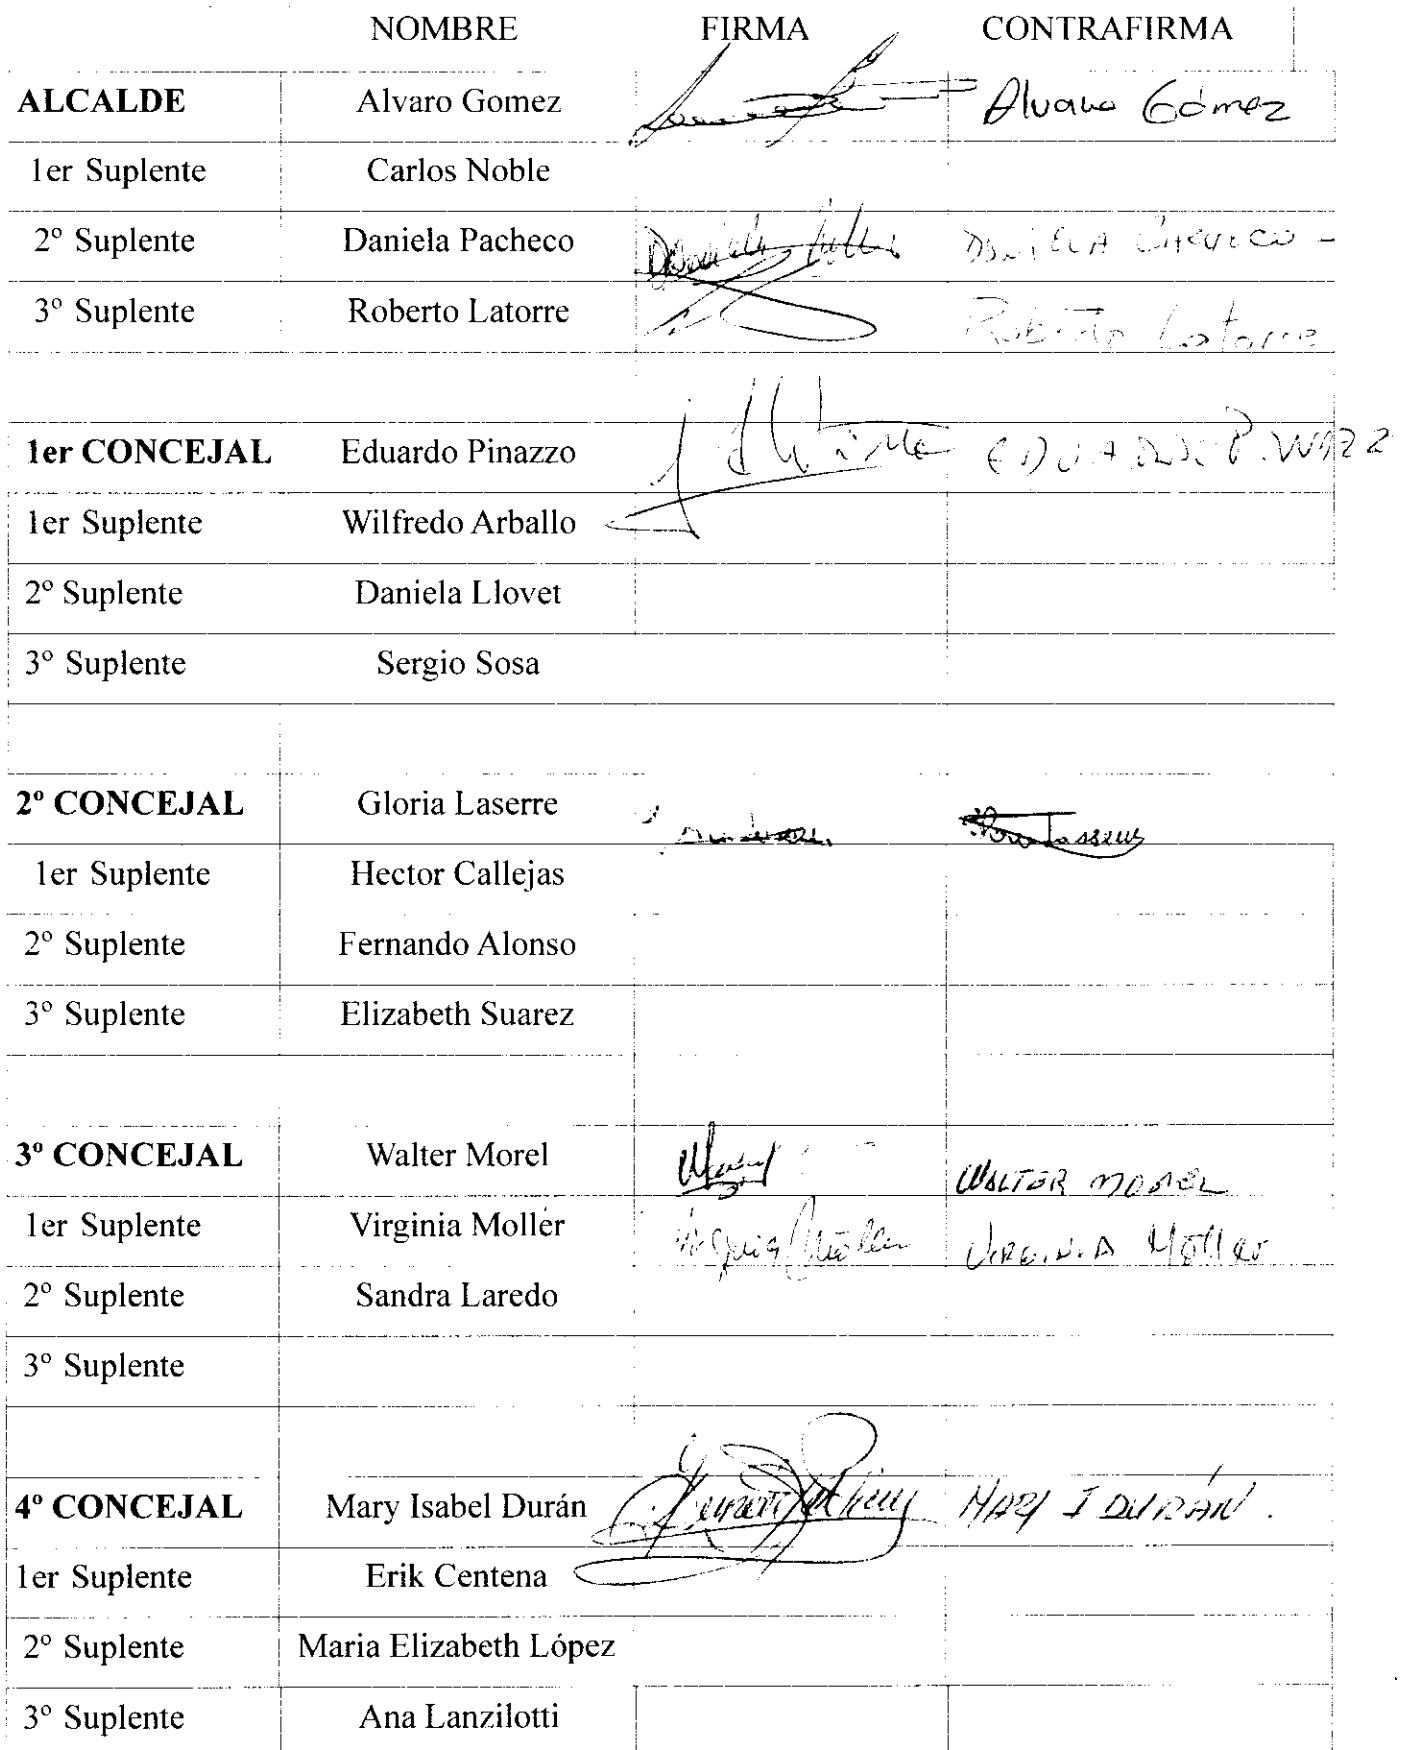 NOMBRE FIRMA CONTRAFIRMA
ALCALDE Alvaro Gomez Alvaro Gómez
1er Suplente Carlos Noble
2º Suplente Daniela Pacheco Daniela DANIELA PACHECO -
3º Suplente Roberto Latorre Roberto Latorre
1er CONCEJAL Eduardo Pinazzo EDUARDO
1er Suplente Wilfredo Arballo
2º Suplente Daniela Llovet
3º Suplente Sergio Sosa
2º CONCEJAL Gloria Laserre
1er Suplente Hector Callejas
2º Suplente Fernando Alonso
3º Suplente Elizabeth Suarez
3º CONCEJAL Walter Morel WALTER MOREL
1er Suplente Virginia Moller Virginia Möller VIRGINIA Möller
2º Suplente Sandra Laredo
3º Suplente
4º CONCEJAL Mary Isabel Durán MARY I DURÁN.
1er Suplente Erik Centena
2º Suplente Maria Elizabeth López
3º Suplente Ana Lanzilotti